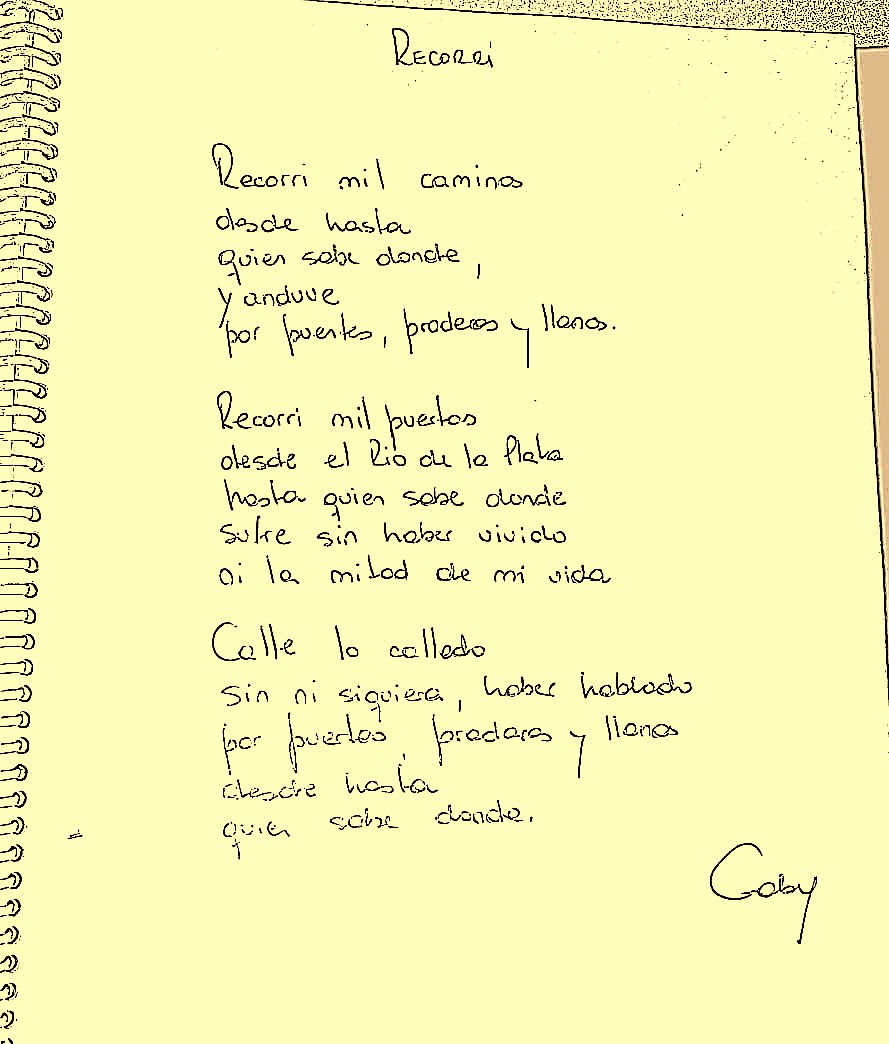 RECORRÍ
Recorri mil caminos
desde hasta
quien sabe donde,
y anduve
por puentes, praderas y llanos.
Recorri mil puertos
desde el Rio de la Plata
hasta quien sabe donde
sufre sin haber vivido
ni la mitad de mi vida
Calle lo callado
sin ni siquiera, haber hablado
por puertos, praderas y llanos
desde hasta
quien sabe donde.
Gaby